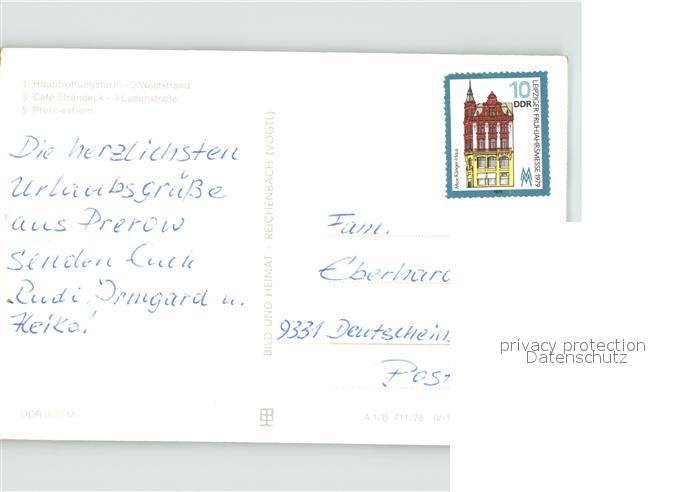 1 Hauptrettungsturm – 2 Weststrand
3 Café Strandeck – 4 Ladenstraße
5 Prerowstrom
Die herzlichsten
Urlaubsgrüße
aus Prerow
senden Euch
Rudi, Irmgard u.
Heiko!
DDR 0,20 M
BILD UND HEIMAT · REICHENBACH (VOGTL)
10
DDR
LEIPZIGER FRÜHJAHRSMESSE 1979
Max-Klinger-Haus
1979
Fam.
Eberhard
9331 Deutschein
Post
A 1/B 711/78 IV-1
privacy protection
Datenschutz